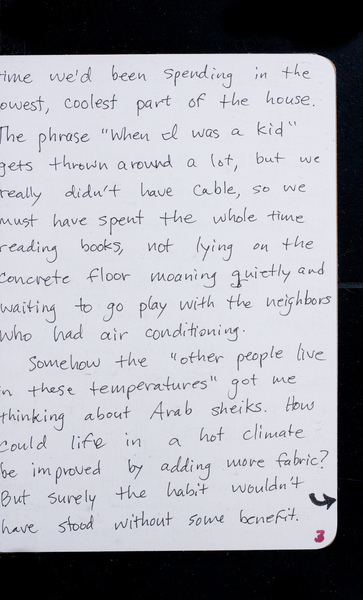 time we'd been spending in the
lowest, coolest part of the house.
The phrase "When I was a kid"
gets thrown around a lot, but we
really didn't have cable, so we
must have spent the whole time
reading books, not lying on the
concrete floor moaning quietly and
waiting to go play with the neighbors
who had air conditioning.
Somehow the "other people live
in these temperatures" got me
thinking about Arab sheiks. How
could life in a hot climate
be improved by adding more fabric?
But surely the habit wouldn't
have stood without some benefit.
3